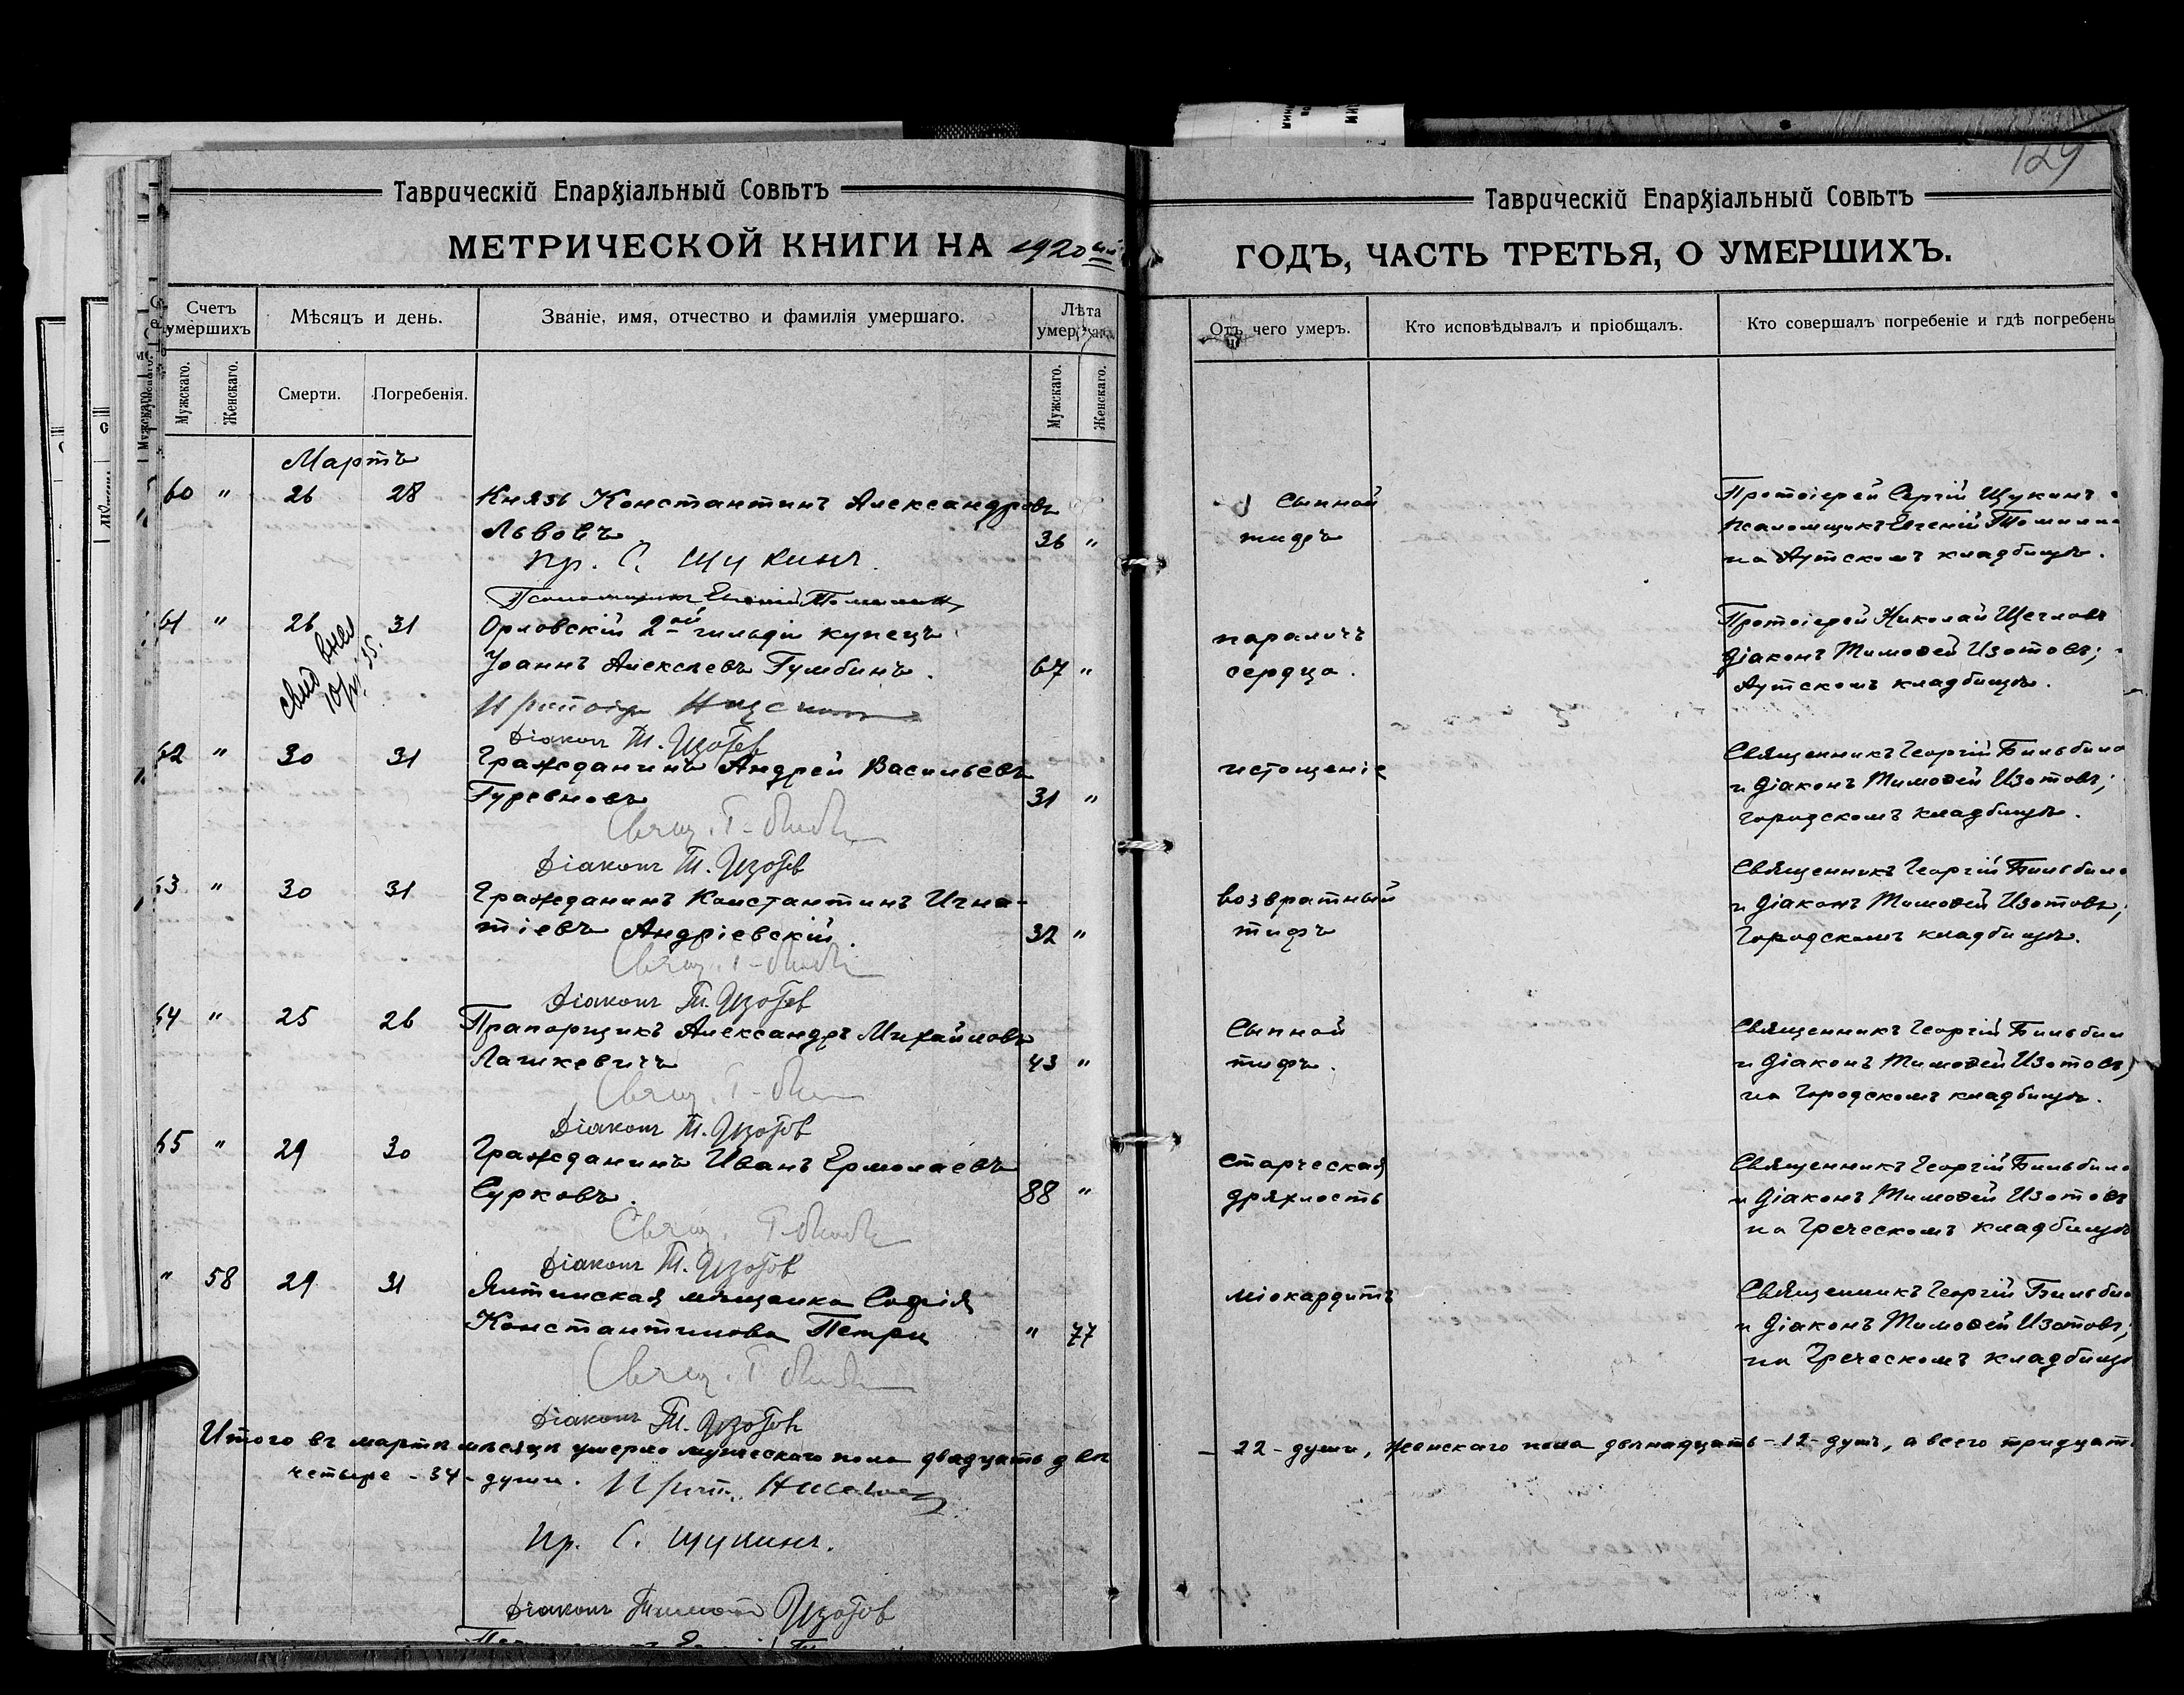 129
Таврическій Епархіальный Совѣтъ
МЕТРИЧЕСКОЙ КНИГИ НА 1920 ый
Счетъ умершихъ
Мѣсяцъ и день.
Званіе, имя, отчество и фамилія умершаго.
Лѣта
Мужскаго.
Женскаго.
Смерти.
Погребенія.
Мужскаго.
Женскаго.
Мартъ
60 " 26 28 Князь Константинъ Александровъ
Львовъ 36 "
Пр. С. Щукинъ.
Псаломщикъ Евгеній
61 " 26 31 Орловскій 2ой гильдіи купецъ
Іоаннъ Алексѣевъ Гумбинъ. 67 "
Діаконъ Т. Изотов
62 " 30 31 Гражданинъ Андрей Васильевъ
31 "
Свящ. Г.
Діаконъ Т. Изотов
63 " 30 31 Гражданинъ Константинъ Игна-
тіевъ Андріевскій. 32 "
Свящ. Г.
Діаконъ Т. Изотов
64 " 25 26 Прапорщикъ Александръ Михайловъ
Лашкевичъ 43 "
Свящ. Г.
Діаконъ Т. Изотов
65 " 29 30 Гражданинъ Иванъ Ермолаевъ
Сурковъ. 88 "
Свящ. Г.
Діаконъ Т. Изотов
" 58 29 31 Ялтинская мѣщанка Софія
Константинова Петри " 77
Свящ. Г.
Діаконъ Т. Изотов
Итого въ мартѣ мѣсяцѣ умерло мужескаго пола двадцать двѣ
четыре - 34 - души.
Пр. С. Щукинъ.
Діаконъ Изотов
Таврическій Епархіальный Совѣтъ
ГОДЪ, ЧАСТЬ ТРЕТЬЯ, О УМЕРШИХЪ.
Отъ чего умеръ.
Кто исповѣдывалъ и пріобщалъ.
Кто совершалъ погребеніе и гдѣ погребены
Сыпной
тифъ
Протоіерей Сергій Щукинъ
псаломщикъ Евгеній
на Аутскомъ кладбищѣ.
параличъ
сердца.
Протоіерей Николай Щегловъ
діаконъ Тимоѳей Изотовъ;
Аутскомъ кладбищѣ.
истощеніе
Священникъ Георгій
и діаконъ Тимоѳей Изотовъ;
городскомъ кладбищѣ.
возвратный
тифъ
Священникъ Георгій
и діаконъ Тимоѳей Изотовъ;
Городскомъ кладбищѣ.
Сыпной
тифъ.
Священникъ Георгій
и діаконъ Тимоѳей Изотовъ;
на Городскомъ кладбищѣ.
старческая
дряхлость
Священникъ Георгій
и діаконъ Тимоѳей Изотовъ
на Греческомъ кладбищѣ
міокардитъ
Священникъ Георгій
и діаконъ Тимоѳей Изотовъ;
на Греческомъ кладбищѣ
- 22 - души, женскаго пола двѣнадцать - 12 - душъ, а всего тридцать